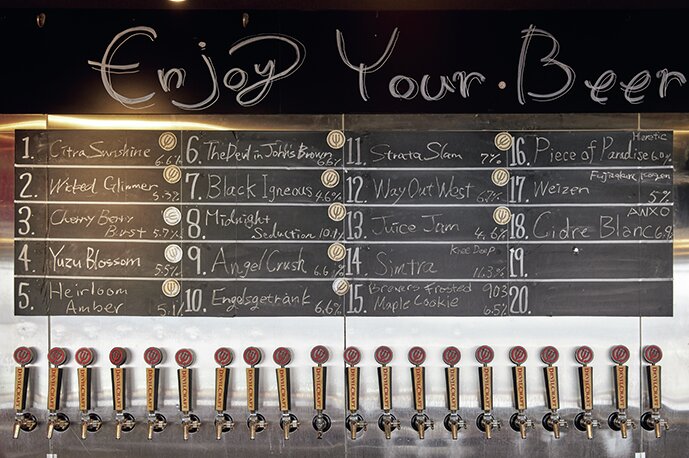 Enjoy Your Beer
1. Citra Sunshine 6.6%
2. Wicked Glimmer
3. Cherry Berry
Bust 5.7%
4. Yuzu Blossom 5.5%
5. Heirloom
Amber 5.1%
6. The Devil in John's Brown
7. Black Igneous 4.6%
8. Midnight
Seduction 10.1%
9. Angel Crush 6.6%
10. Engelsgetränk 6.6%
11. Strata Slam 7%
12. Way Out West
13. Juice Jam 4.6%
14. Knee Deep
Simtra 11.3%
15. Brewers Frosted 903
Maple Cookie 6.5%
16. Heretic
Piece of Paradise 6.0%
17. Fujizakura Kogen
Weizen 5%
18. ANXO
Cidre Blanc 6.9%
19.
20.